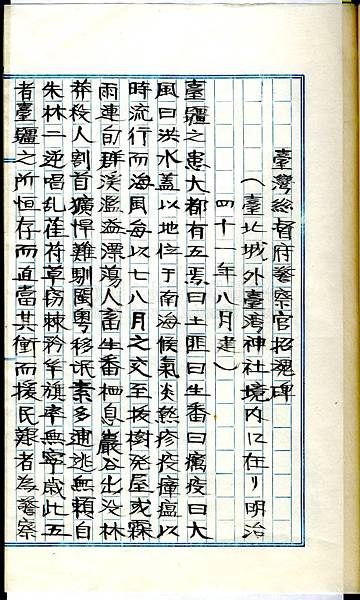 臺灣総督府警察官招魂碑
（臺北城外臺灣神社境内に在り明治
四十一年八月建）
臺疆之患大都有五焉曰土匪曰生番曰癘疫曰大
風曰洪水蓋以地位于南海候氣炎熱疹疫瘴瘟以
時流行而海風每以七八月之交至拔樹発屋或霖
雨連旬群溪濫溢澤蕩人畜生番栖息巖谷出没林
莽殺人割首獷悍難馴閩粵移氓素多逋逃無頼自
朱林二逆唱乱萑苻草窃棘矜竿旗率無寧歳此五
者臺疆之所恒存而直當其衝而援民艱者為警察